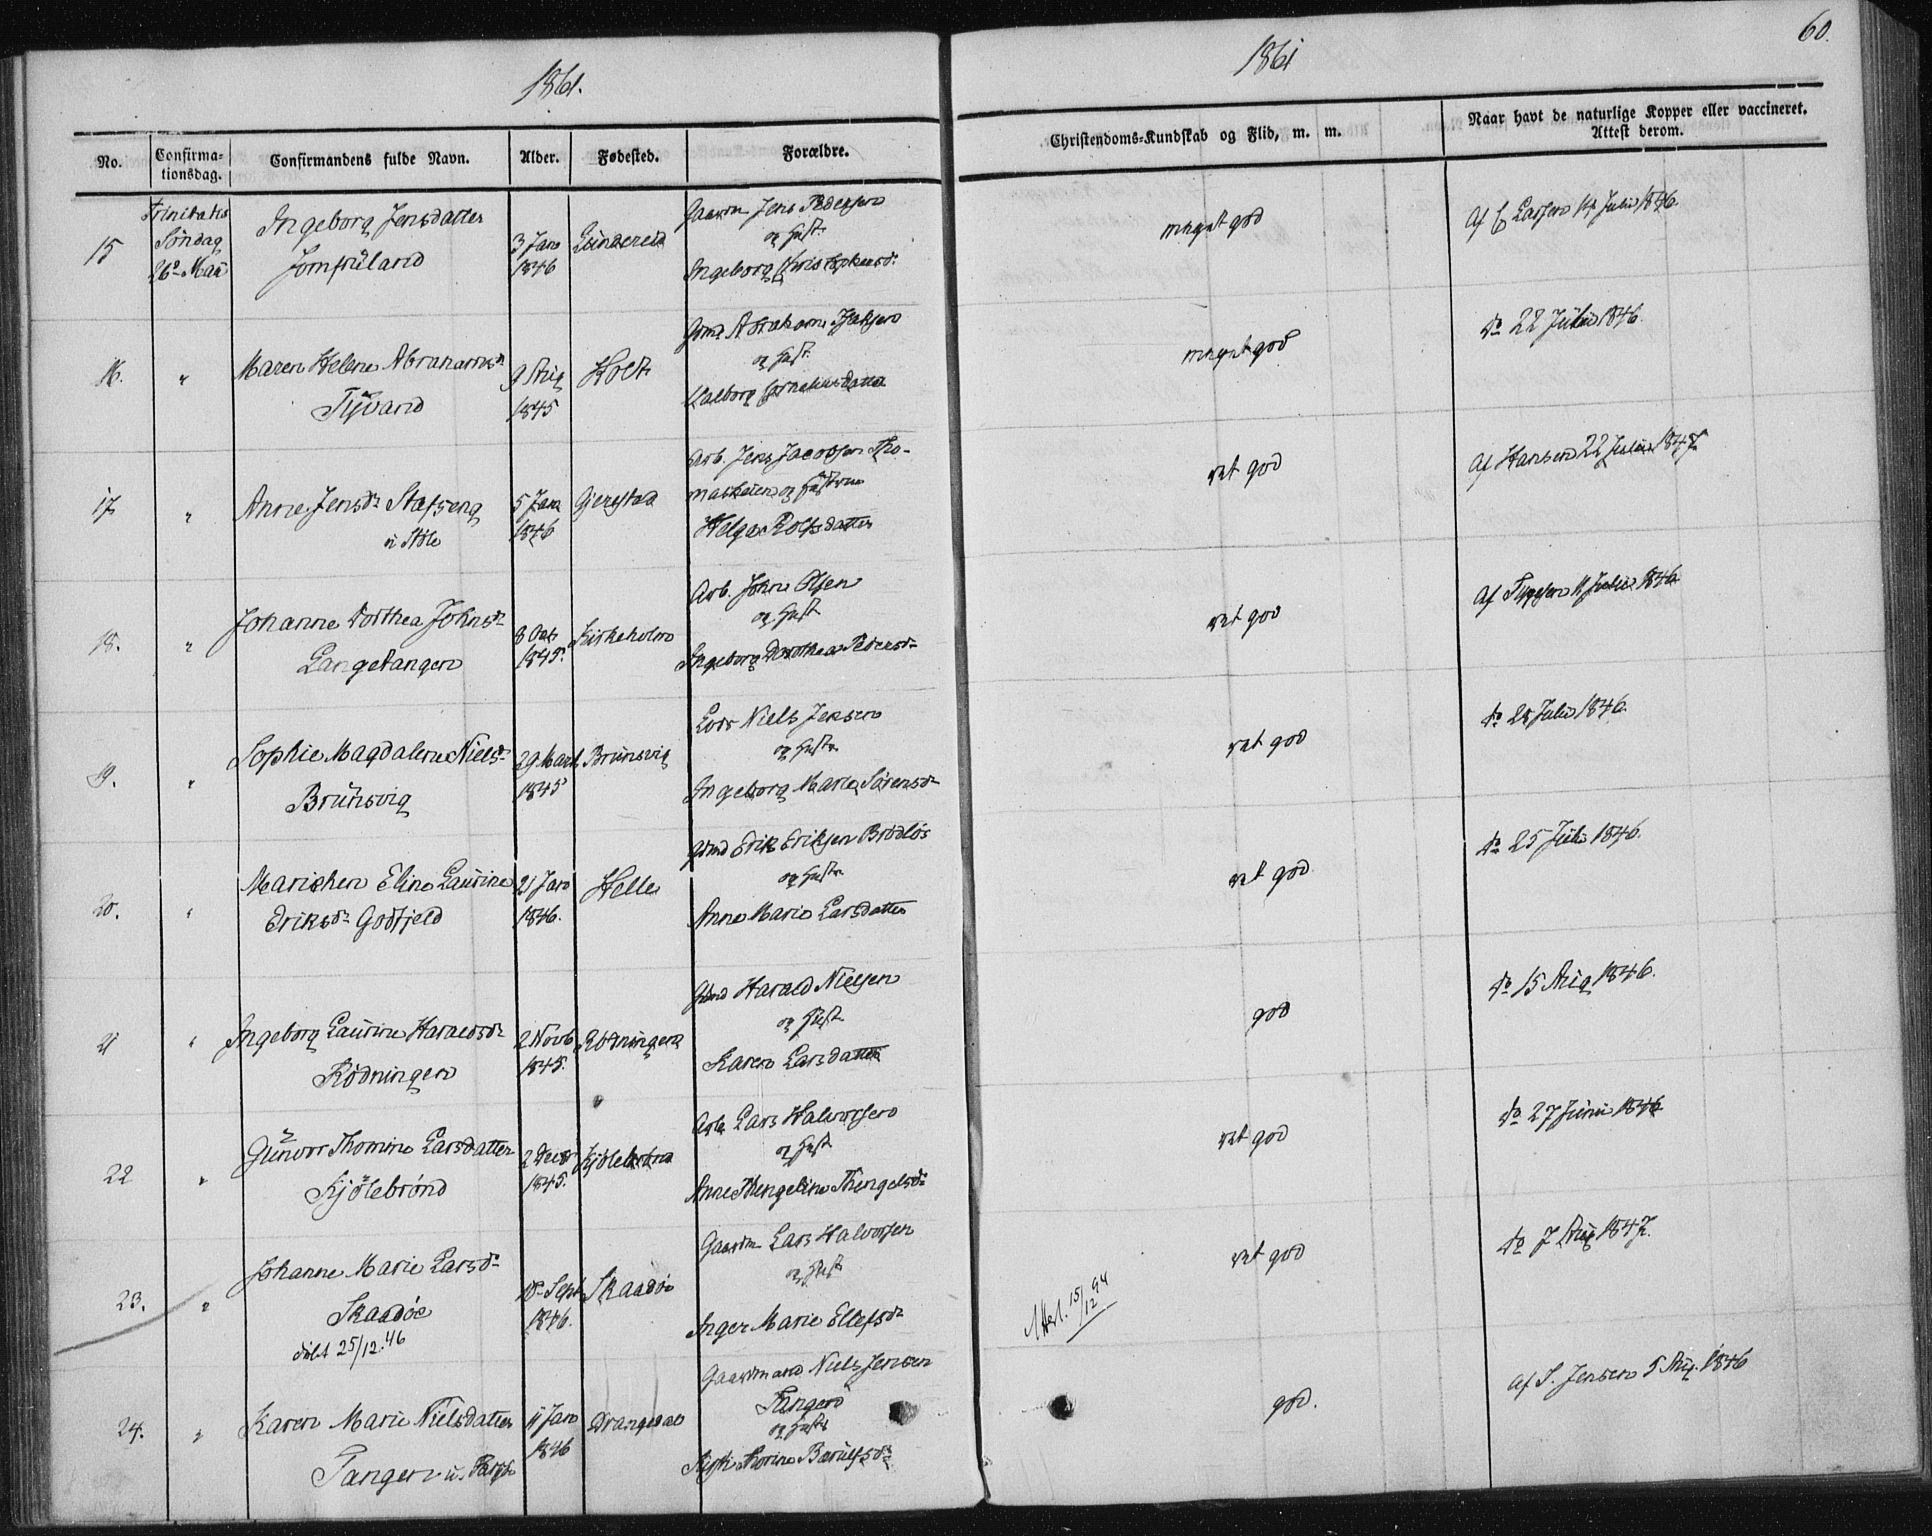 1861.
1861
60.
No.
Confirma-
tionsdag.
Confirmandens fulde Navn.
Alder.
Fødested.
Forældre.
Christendoms-Kundskab og Flid, m. m.
Naar havt de naturlige Kopper eller vaccineret.
Attest derom.
15
Trinitatis
Søndag
26de Mai
Ingeborg Jensdatter
Jomfruland
3 Jan
1846
Gaardm Jens Pedersen
og Hustr
Ingeborg Kristophersd.
meget god
Af Larsen Juli 1846.
16.
"
Maren Helene Abrahamsdr
9 Aug
1845
Holt
Gmd Abraham Isaksen
og Hust.
Valborg Corneliusdatter
meget god
do 22 Juli 1846.
17
"
Anne Jensdr Stafseng
5 Jan
1846
Gjerestad
Arb. Jens Jacobsen Tho-
og Hustrue
Helga Rolfsdatter
ret god
Af Hansen 22 Juli 1847.
18.
"
Johanne Dorthea Johnsdr
Langetangen
8 Oct
1845.
Kirkeholm
Arb. John Olsen
og Hust
Ingeborg Dorothea Pedersdr
ret god
Af Juli 1846
19.
"
Sophie Magdalene Nielsdr
Brunsvig
29 Marts
1845
Brunsvig
Lods Niels Jensen
og Hustr
Ingeborg Marie Sørensdr
ret god
do 28 Juli 1846.
20.
"
Marichen Eline Laurine
Eriksdr Godfjeld
21 Jan
1846.
Helle
Gmd Erik Eriksen Brødløs
og Hustr
Anne Marie Larsdatter
ret god
do 25 Juli 1846.
21
"
Ingeborg Laurine Haraldsdr
Rødningen
2 Novb
1845.
Rødningen
Gmd Harald Nielsen
og Hust
Karen Larsdatter
god
do 15 Aug 1846.
22
"
Gunvor Thomine Larsdatter
Kjølebrønd
2 Decbr
1845.
Kjølebrønd
Arb Lars Halvorsen
og Hust
Anne Thengeline Thengelsdr
ret god
do 27 Juni 1846
23.
"
Johanne Marie Larsdr
Skaadøe
døbt 25/12.46
18 Sept
1846.
Skaadøe
Gaardm Lars Halvorsen
og Hust
Inger Marie Ellefsdr
Attest. 15/12 94
ret god
do 7 Aug 1847.
24.
"
Karen Marie Nielsdatter
Tangen
11 Jan
1846
Drangedal
Gaardmand Niels Jensen
Tangen
og Hustr
god.
Af S. Jensen 5 Aug. 1846